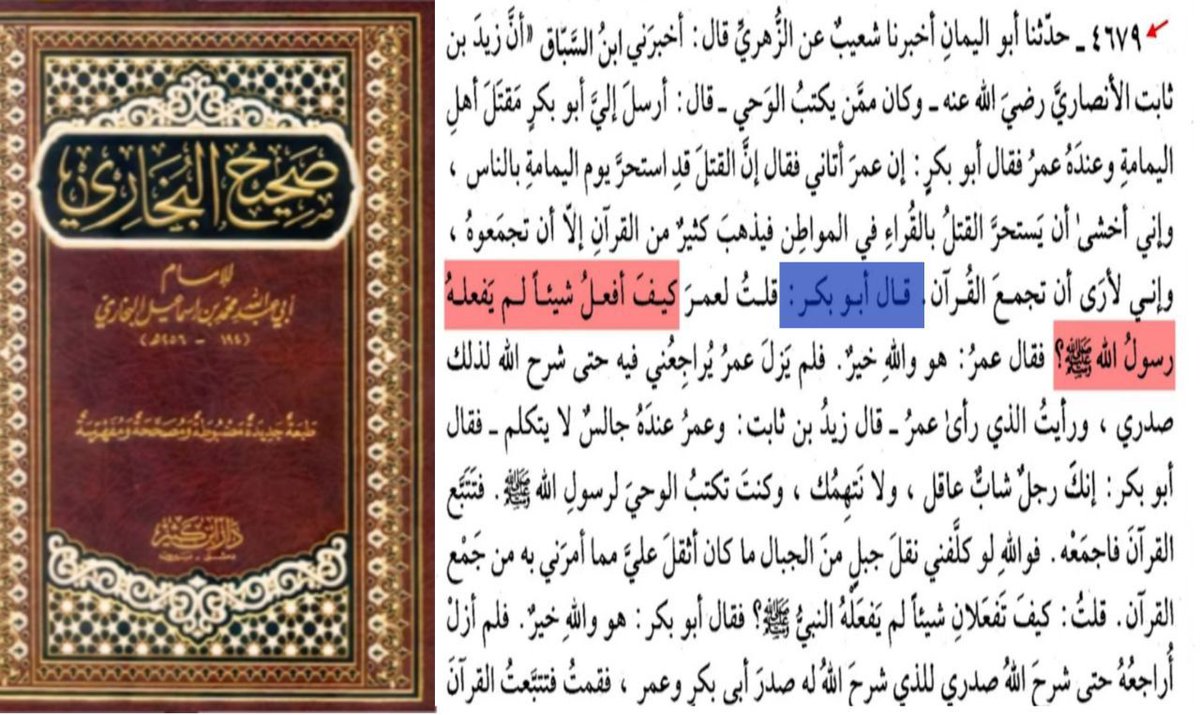 صَحِيحُ البُخَارِي
للإمام
أبي عبد الله محمد بن اسماعيل البخاري
(١٩٤ - ٢٥٦هـ)
طبعة جديدة مضبوطة ومصححة ومفهرسة
دار ابن كثير
دمشق - بيروت
٤٦٧٩ ـ حدّثنا أبو اليمانِ أخبرنا شعيبٌ عن الزُّهريِّ قال: أخبرَني ابنُ السَّبّاق «أنَّ زيدَ بن
ثابت الأنصاريَّ رضيَ الله عنه ـ وكان ممَّن يكتبُ الوَحي ـ قال: أرسلَ إليَّ أبو بكرٍ مَقتَلَ أهلِ
اليمامةِ وعندَهُ عمرُ فقال أبو بكرٍ: إن عمرَ أتاني فقال إنَّ القتلَ قدِ استحرَّ يوم اليمامةِ بالناس ،
وإني أخشىٰ أن يَستحرَّ القتلُ بالقُراءِ في المواطِن فيذهبَ كثيرٌ من القرآنِ إلّا أن تجمَعوهُ ،
وإني لأرَى أن تجمعَ القُرآن. قال أبو بكر: قلتُ لعمرَ كيفَ أفعلُ شيئاً لم يَفعلهُ
رسولُ الله ﷺ؟ فقال عمرُ: هو واللهِ خيرٌ. فلم يَزلَ عمرُ يُراجِعُني فيه حتى شرح الله لذلك
صدري ، ورأيتُ الذي رأىٰ عمرُ ـ قال زيدُ بن ثابت: وعمرُ عندَهُ جالسٌ لا يتكلم ـ فقال
أبو بكر: إنكَ رجلٌ شابٌّ عاقل ، ولا نَتهِمُك ، وكنتَ تكتبُ الوحيَ لرسولِ اللهِ ﷺ. فتَتَبَّع
القرآنَ فاجمَعْه. فواللهِ لو كلَّفني نقلَ جبلٍ منَ الجبال ما كان أثقلَ عليَّ مما أمرَني به من جَمْع
القرآن. قلتُ: كيفَ تَفعَلانِ شيئاً لم يَفعَلْهُ النبيُّ ﷺ؟ فقال أبو بكر: هو واللهِ خيرٌ. فلم أزلْ
أُراجعُهُ حتى شرحَ اللهُ صدري للذي شرحَ اللهُ له صدرَ أبي بكرٍ وعمر ، فقمتُ فتتبَّعتُ القرآنَ